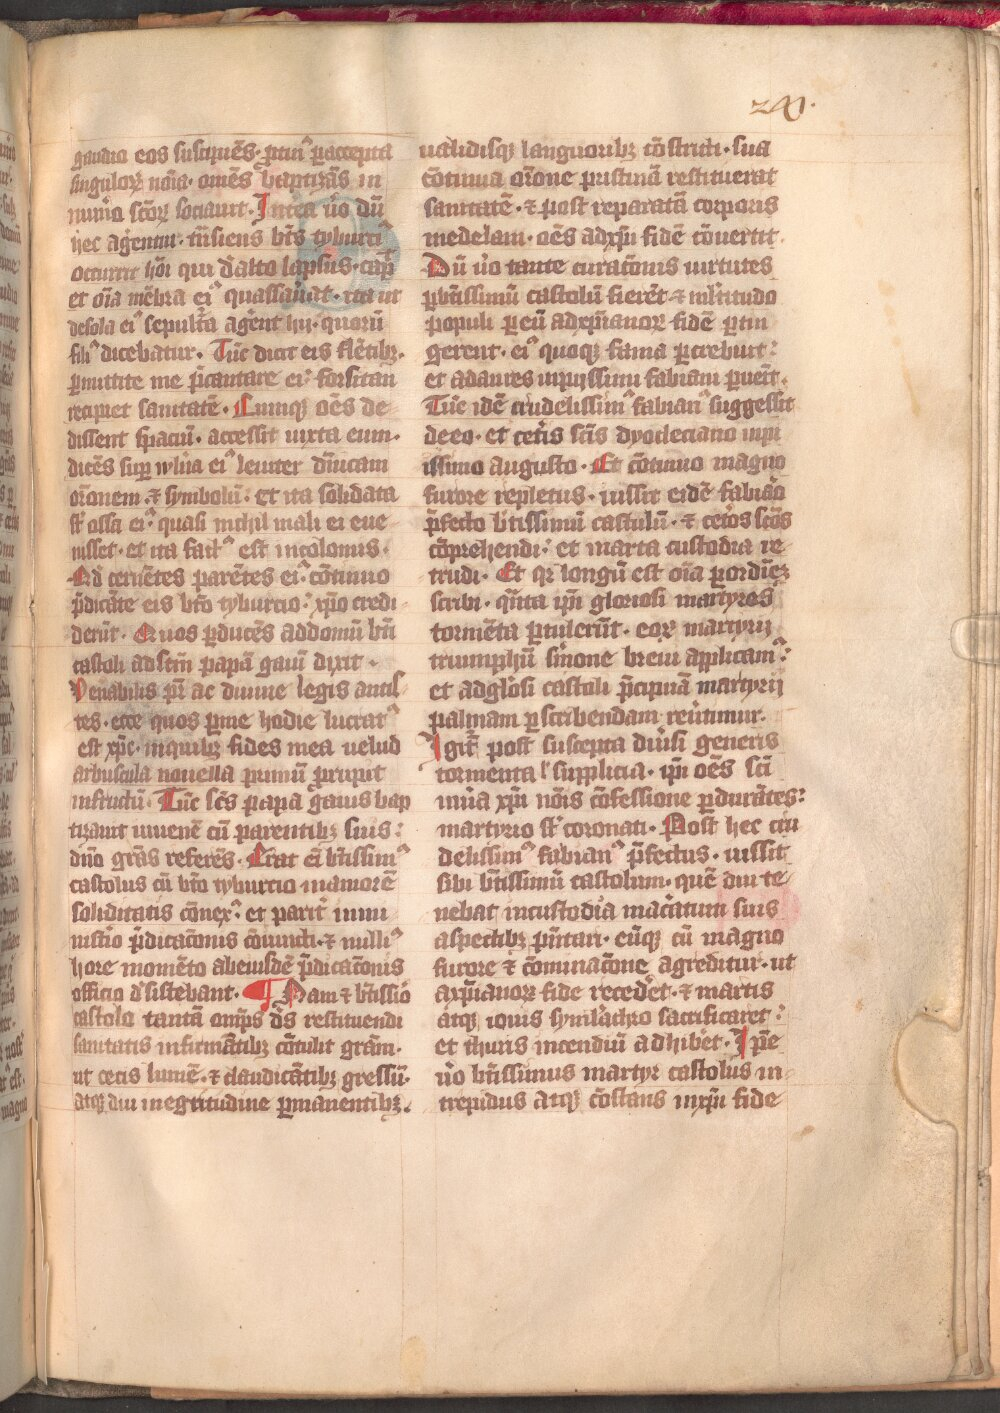 241.
gaudio eos suscipiēs. ꝓtin᷒ ꝑaccepta
singuloꝝ noīa. omēs baptizās in
numō scōꝝ sociauit. Intea ūo dū
hec agentur. trāsiens bt̄s tyburti᷒
occurrit hōī qui dalto lapsus. cap̄
et oīa mēbra ei᷒ quassauat. ita ut
desola ei᷒ sepultᷓa agēnt hii. quorū
fili᷒ dicebatur. Tūc dicit eis flētibꝫ.
ꝑmittite me p̄cantare ei᷒. forsitan
recipiet sanitatē. Cumqꝫ oēs de-
dissent spaciū. accessit iuxta eum.
dicēs suꝑ wln̄a ei᷒ leniter dn̄icam
orōnem. ⁊ symbolū. et ita solidata
st̄ ossa ei᷒. quasi nichil mali ei eue-
nisset. et ita fact᷒ est incolomis.
Ad cernētes parētes ei᷒. cōtinuo
p̄dicāte eis bt̄o tyburcio. xp̄o credi-
derūt. Quos ꝑducēs addomū bt̄i
castoli ad scm̄ papā gaiū dixit.
Venabilis pr̄ ac diuine legis antis-
tes. ecce quos ꝑme hodie lucrat᷒
est xp̄c. inquibꝫ fides mea uelud
arbuscula nouella primū prupit
infructū. Tūc sc̄s papa gaius bap
tizauit iuuenē cū parentibꝫ suis:
dn̄o gr̄as referēs. Erat ei bt̄issim᷒
castolus cū bt̄o tyburcio inamorē
soliditatis cōnex᷒. et parit̄ inmi-
nistio p̄dicac̄onis cōiuncti. ⁊ nulli᷒
hore momēto abeiusdē p̄dicac̄onis
officio dsistebant. ¶ Nam ⁊ bt̄issio
castolo tantā omp̄s ds̄ restituendi
sanitatis infirmātibꝫ cōtulit grām.
ut cecis lumē. ⁊ claudicātibꝫ gressū.
atqꝫ diu inegritudine ꝑmanentibꝫ.
ualidisqꝫ languoribꝫ cōstricti. sua
cōtinua orōne pristinā restituerat
sanitatē. ⁊ post reparatā corporis
medelam. oēs adxp̄i fidē cōuertit.
Dū ūo tante curac̄onis uirtutes
ꝑbt̄issimū castolū fierēt ⁊ ml̄titudo
populi ꝑ eū adxp̄ianoꝝ fidē ꝑtin
gerent. ei᷒ quoqꝫ fama ꝑcrebuit:
et adaures inpiissimi fabiani ꝑuēit.
Tūc idē crudelissim᷒ fabian᷒ suggessit
deeo. et cetīs scīs dyocleciano inpi
issimo augusto. Et cōtinuo magno
furore repletus. iussit eidē fabiāo
p̄fecto bt̄issimū castulū. ⁊ cetōs scōs
cōprehendi. et inarta custodia re-
trudi. Et qꝛ longū est oīa ꝑordiēꝫ
scribi. qn̄ta ip̄i gloriosi martyres
tormēta ꝑtulerūt. eoꝝ martyrij
triumphū sīmone breui applicam᷒:
et adglōsi castoli p̄cipuā martyrij
palmam ꝑscribendam reūtimur.
Igit̄ post suscepta diūsi generis
tormenta ł supplicia. ip̄i oēs scī
inūa xp̄i nōis cōfessione ꝑdurātes:
martyrio st̄ coronati. Post hec cru
delissim᷒ fabian᷒ p̄fectus. iussit
sibi bt̄issimū castolum. quē diu te-
nebat incustodia mac̄atum suis
aspectibꝫ p̄ntari. eūqꝫ cū magno
furore ⁊ cōminac̄one agreditur. ut
axp̄ianoꝝ fide recedet. ⁊ martis
atqꝫ iouis symlac̄ro sacrificaret:
et thuris incendiū adhibēt. Ip̄e
ūo bt̄issimus martyr castolus in-
trepidus atqꝫ cōstans inxp̄i fide